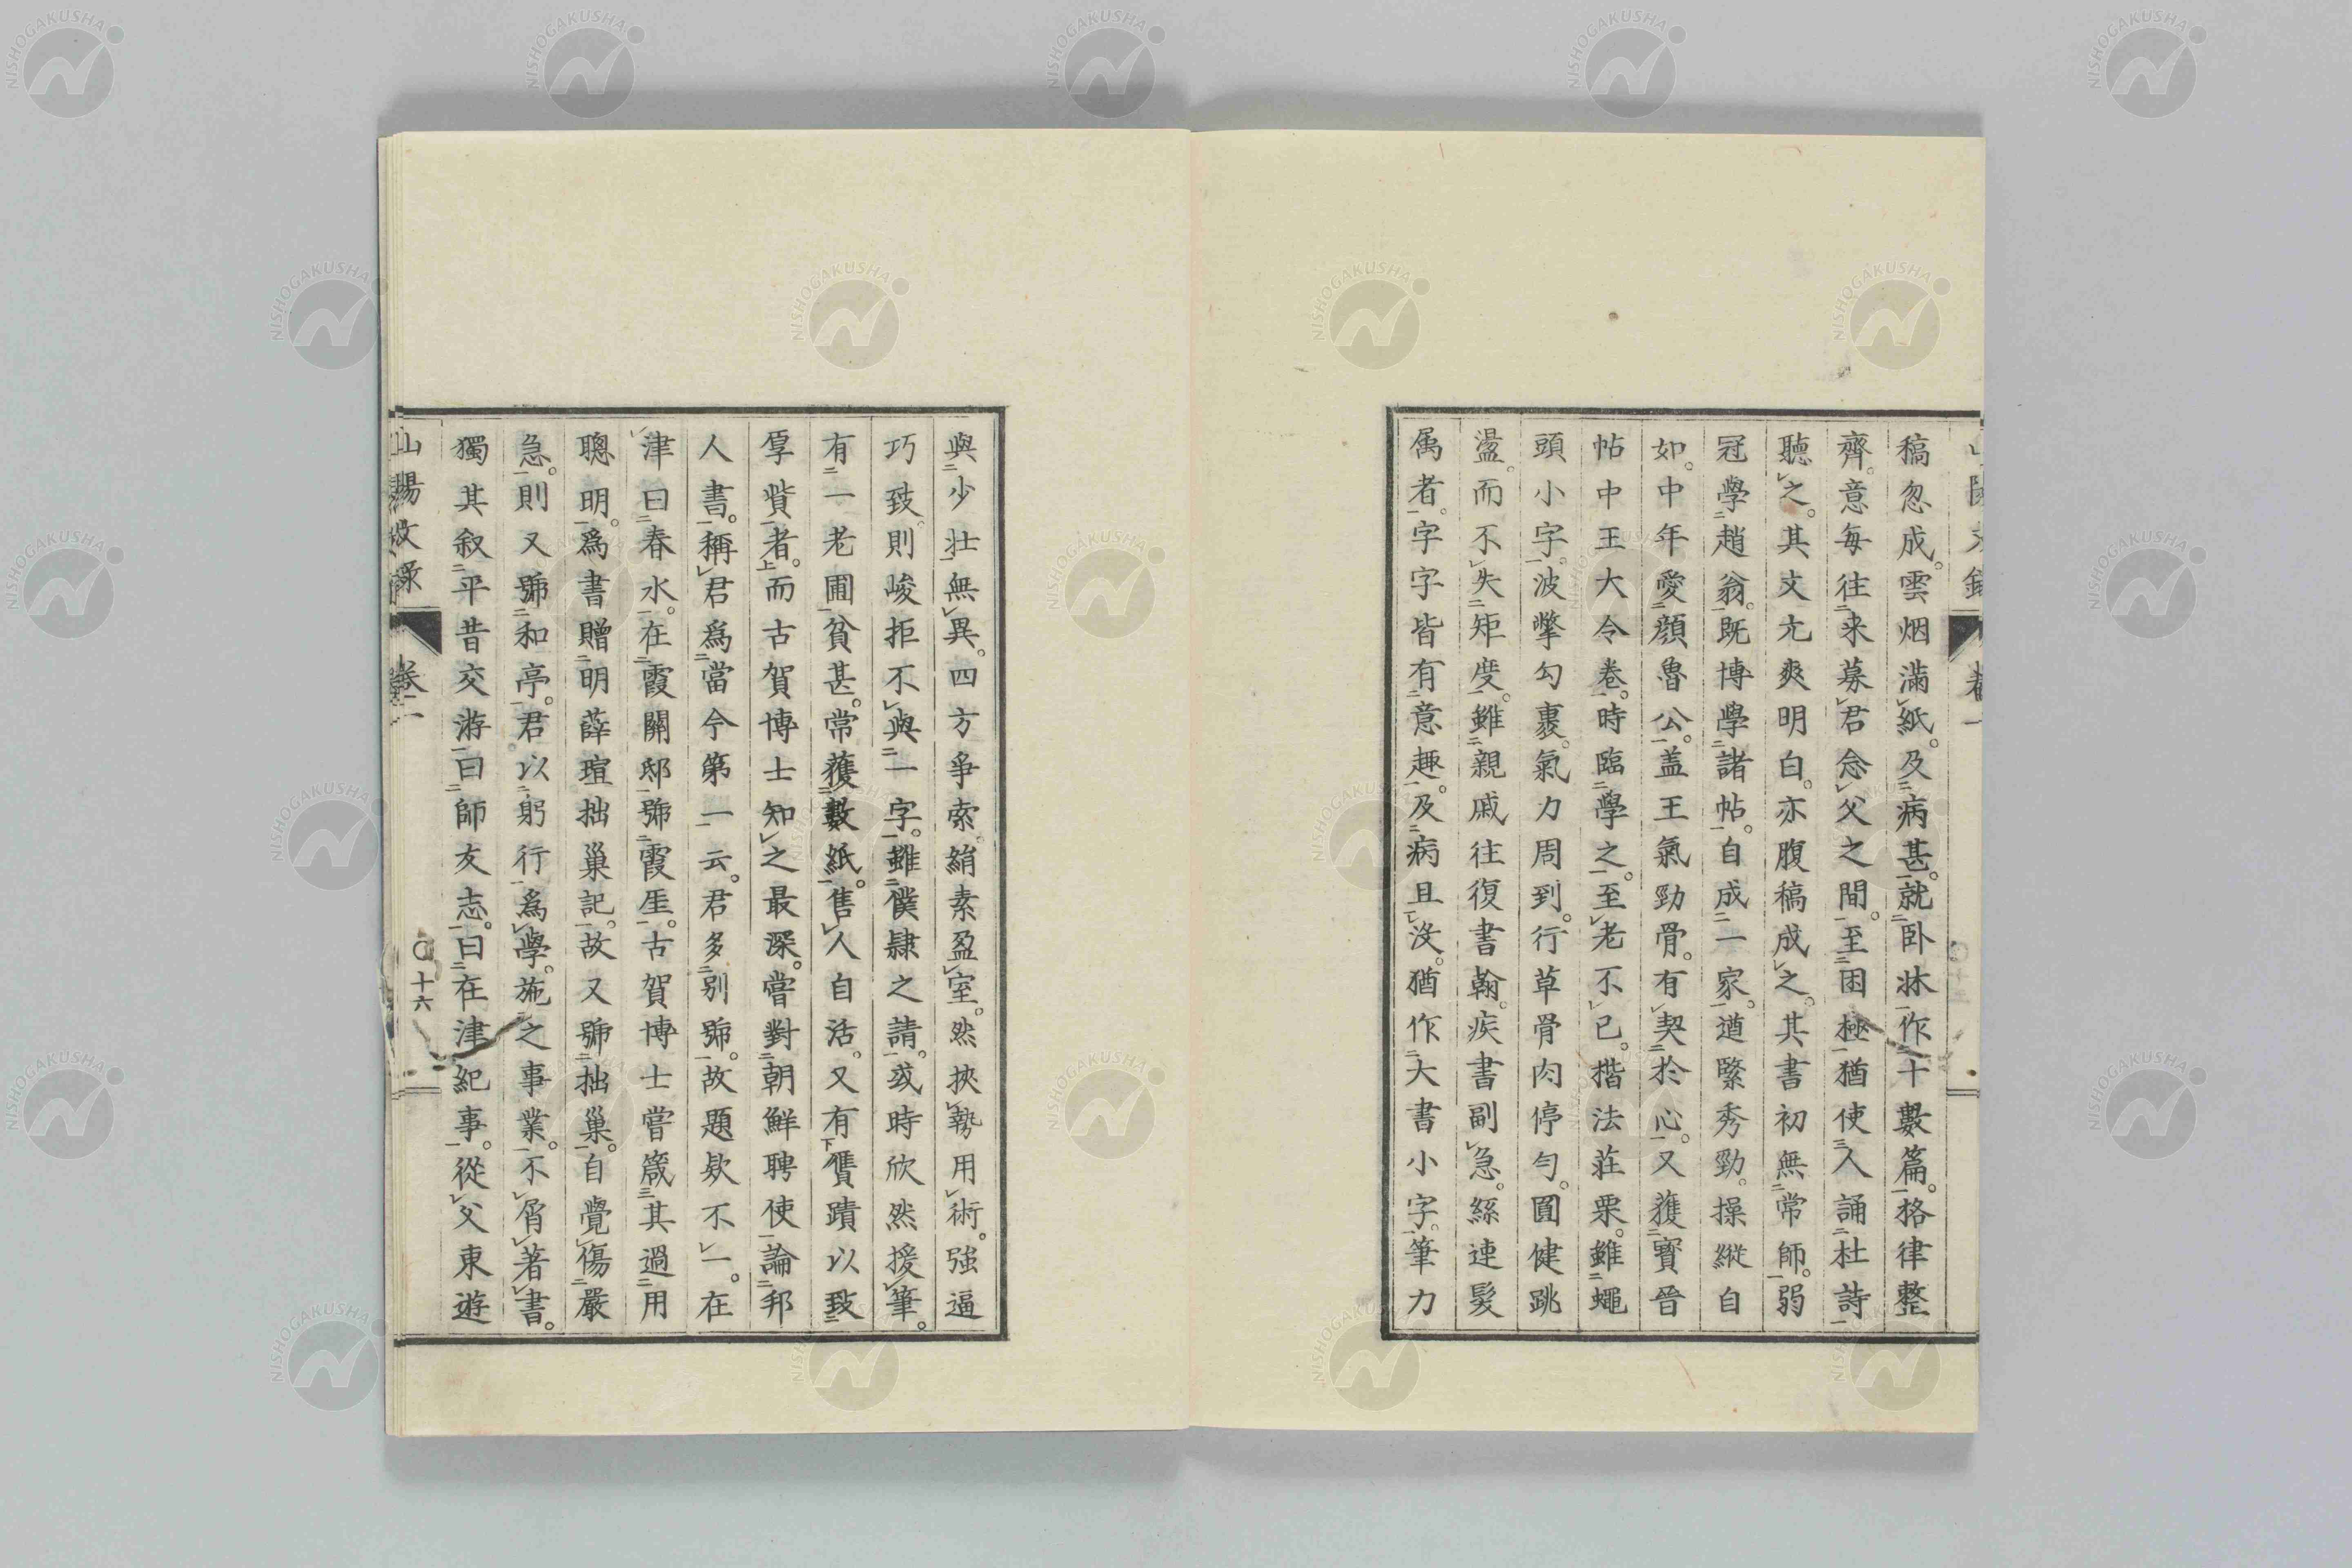 稿忽成。雲烟滿紙。及病甚。就卧牀作十數篇。格律整
齊。意每往来募君念父之間。至困極猶使人誦杜詩
聽之。其文尤爽明白。亦腹稿成之。其書初無常師。弱
冠學趙翁。既博學諸帖。自成一家。遒緊秀勁。操縱自
如。中年愛顔魯公。盖王氣勁骨。有契於心。又獲寶晉
帖中王大令卷。時臨學之。至老不已。楷法莊栗。雖蠅
頭小字。波撆勾裹。氣力周到。行草骨肉停勻。圓健跳
盪。而不失矩度。雖親戚往復書翰。疾書副急。絲連髮
属者。字字皆有意趣。及病且沒。猶作大書小字。筆力
與少壮無異。四方爭索。絹素盈室。然挾勢用術。強逼
巧致。則峻拒不與一字。雖僕隷之請。或時欣然援筆。
有一老圃貧甚。常獲數紙。售人自活。又有贋蹟以致
厚貲者。而古賀博士知之最深。嘗對朝鮮聘使論邦
人書。稱君爲當今第一云。君多別號。故題欵不一。在
津曰春水。在霞關邸號霞厓。古賀博士嘗箴其過用
聰明。爲書贈明薛瑄拙巢記。故又號拙巢。自覺傷嚴
急。則又號和亭。君以躬行爲學。施之事業。不屑著書。
獨其叙平昔交游曰師友志。曰在津紀事。從父東遊
山陽文錄 卷二 〇十六